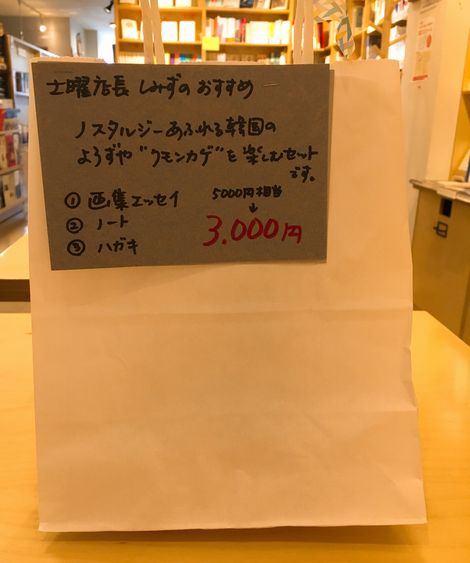 土曜店長 しみずの おすすめ
ノスタルジーあふれる韓国の
よろずや"クモンカゲ"を楽しむセット
です。
① 画集エッセイ
② ノート
③ ハガキ
5000円相当
↓
3.000円